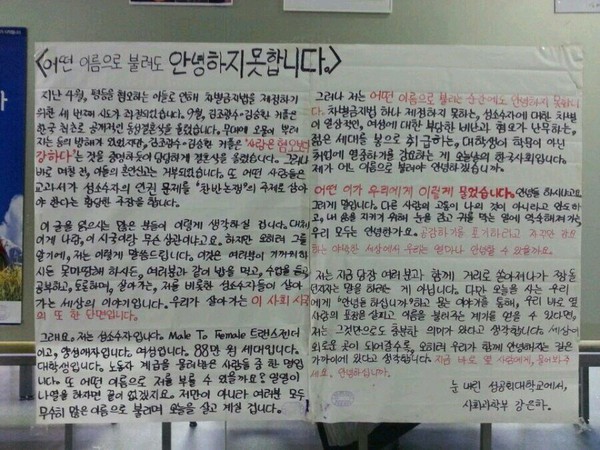 <어떤 이름으로 불려도 안녕하지못합니다.>
지난 4월, 평등을 혐오하는 이들로 인해 차별금지법을 제정하기
위한 세 번째 시도가 좌절되었습니다. 9월, 김조광수-김승환 커플은
한국 최초로 공개적인 동성결혼식을 올렸습니다. 무대에 오물이 뿌려
지는 등의 방해가 있었지만, 김조광수-김승환 커플은 '사랑은 혐오보다
강하다'는 것을 증명하듯이 당당하게 결혼식을 올렸습니다. 그러나
바로 며칠 전, 이들의 혼인신고는 거부되었습니다. 또 어떤 사람들은
교과서가 성소수자의 인권 문제를 "찬반논쟁"의 주제로 삼아
야 한다는 황당한 주장을 합니다.
이 글을 읽으시는 많은 분들이 이렇게 생각하실 겁니다. 대체
이게 나랑, 이 시국이랑 무슨 상관이냐고요. 하지만 오히려 그들
알기에, 저는 이렇게 말씀드립니다. 이것은 여러분이 가까워 하
시든 못마땅해 하시든, 여러분과 같이 밥을 먹고, 수업을 듣고
공부하고, 토론하며, 살아가는, 저를 비롯한 성소수자들이 살아
가는 세상의 이야기입니다. 우리가 살아가는 이 사회 시국
의 또 한 단면입니다.
그래요. 저는 성소수자입니다. Male To Female 트랜스젠더
이고, 양성애자입니다. 여성입니다. 88만 원 세대입니다.
대학생입니다. 노동자 계급을 물려받은 사람들 중 한 명입
니다. 또 어떤 이름으로 저를 부를 수 있을까요? 일일이
나열을 하자면 끝이 없겠지요. 저만이 아니라 여러분 모두
무수히 많은 이름으로 불리며 오늘을 살고 계실 겁니다.
그러나 저는 어떤 이름으로 불리는 순간에도 안녕하지 못합니
다. 차별금지법 하나 제정하지 못하는, 성소수자에 대한 차별
이 일상적인, 여성에 대한 부당한 비난과 혐오가 난무하는,
젊은 세대를 봉으로 취급하는, 대학생이 학문이 아닌
취업에 열중하기를 강요하는 게 오늘날의 한국사회입니다.
제가 어느 이름으로 불려야 안녕하겠습니까.
어떤 이가 우리에게 이렇게 물었습니다. 안녕들 하시냐고요.
그러게 말입니다. 다른 사람의 고통이 나의 것이 아니라고 안도하
고, 내 몸을 지키기 위해 눈을 감고 귀를 막는 일에 익숙해져가는
우리 모두는 안녕한가요. 공감하기를 포기하라고 자꾸만 강요
하는 야속한 세상에서 우리는 얼마나 안녕할 수 있을까요.
저는 지금 당장 여러분과 함께 거리로 쏟아져나가 짱돌
던지자는 말을 하려는 게 아닙니다. 다만 오늘을 사는 우리
에게 "안녕들 하십니까?"하고 묻는 이야기를 통해, 우리 바로 옆
사람의 표정을 살피고 이름을 불러주는 계기를 얻을 수 있다면,
저는 그것만으로도 충분한 의미가 있다고 생각합니다. 세상에
외로운 곳이 되어갈수록, 오히려 우리가 함께 안녕하자는 길은
가까이에 있다고 생각합니다. 지금 바로 옆 사람에게, 물어봐주
세요. 안녕하십니까.
눈 내린 성공회대학교에서,
사회과학부 강은하.